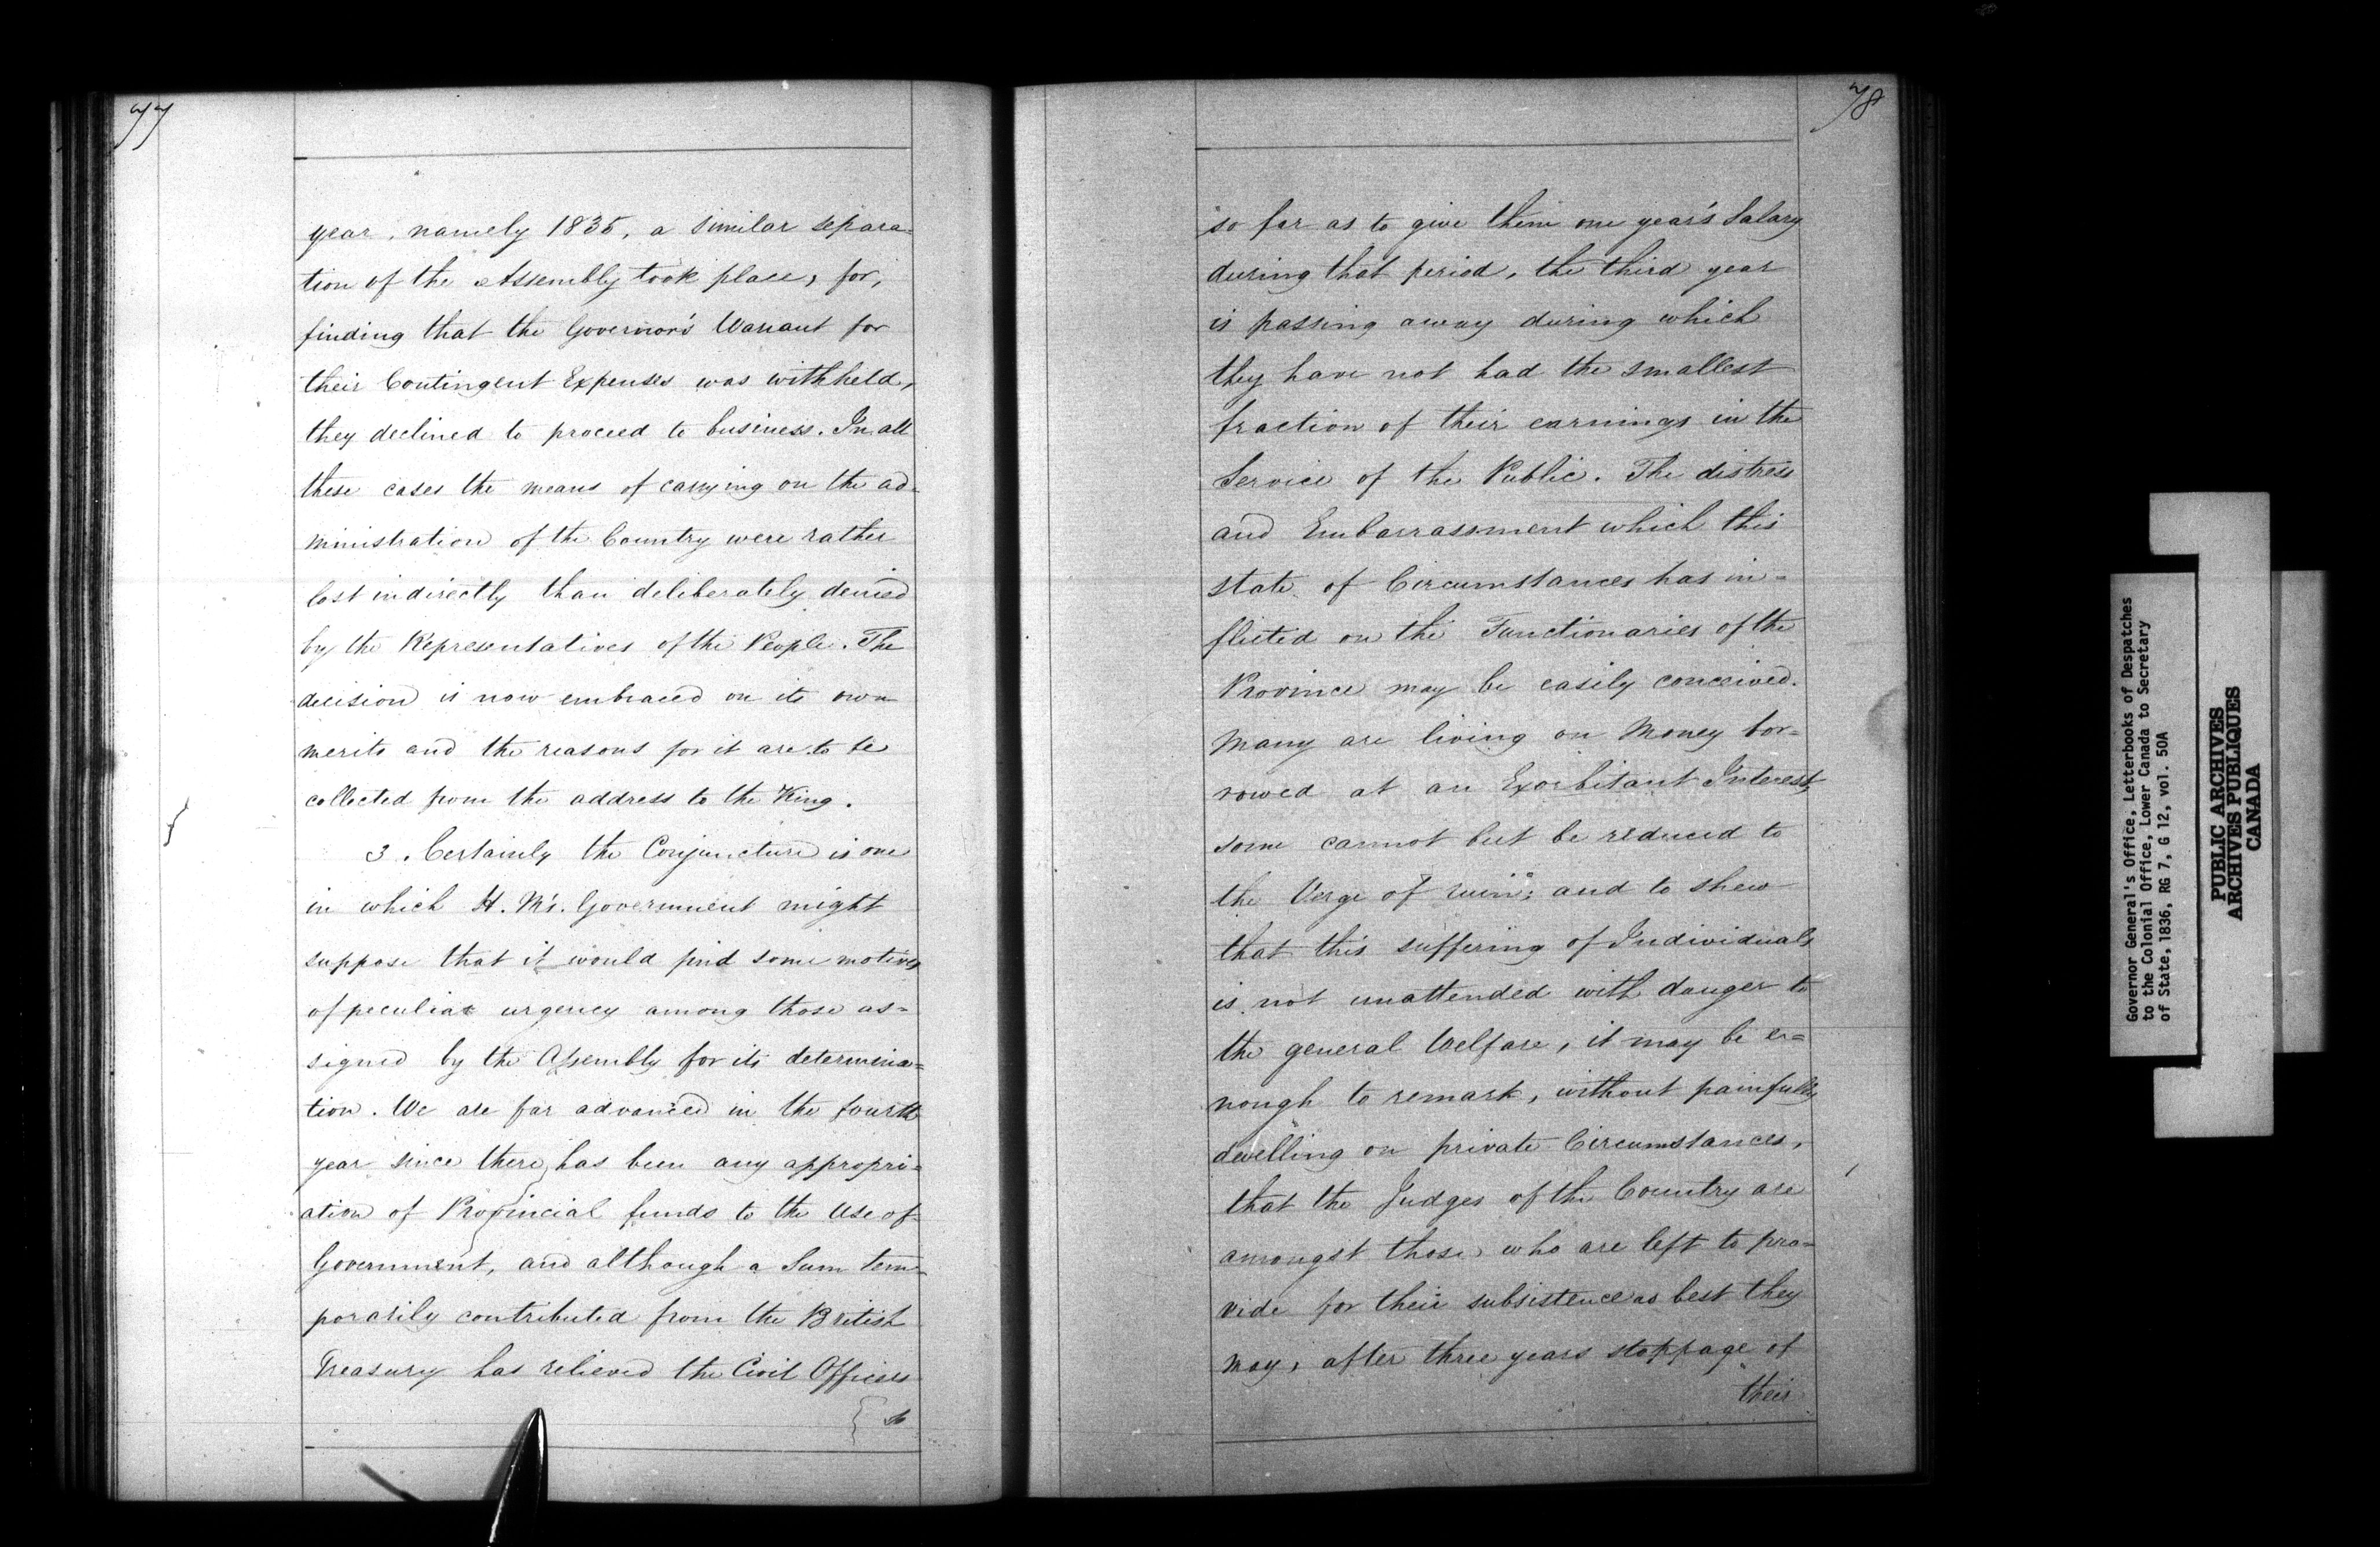 77
year, namely 1835, a similar separa=
tion of the Assembly took place, for,
finding that the Governor's Warrant for
their Contingent Expenses was withheld,
they declined to proceed to business. In all
these cases the means of carrying on the ad-
ministration of the Country were rather
lost indirectly than deliberately denied
by the Representatives of the People. The
decision is now embraced on its own
merits and the reasons for it are to be
collected from the address to the King.
3. Certainly the Conjuncture is one
in which H. M's. Government might
suppose that it would find some motives
of peculiar urgency among those as=
signed by the Assembly for its determina=
tion. We are far advanced in the fourth
year since there has been any appropri=
ation of Provincial funds to the Use of
Government, and although a Sum tem=
porarily contributed from the British
Treasury has relieved the Civil Officers
so
78
so far as to give them one year's Salary
during that period, the third year
is passing away during which
they have not had the smallest
fraction of their earnings in the
Service of the Public. The distress
and Embarrassment which this
state of Circumstances has in=
flicted on the Functionaries of the
Province may be easily conceived.
Many are living on Money bor=
rowed at an Exorbitant Interest,
some cannot but be reduced to
the Verge of ruin; and to shew
that this suffering of Individuals
is not unattended with danger to
the general Welfare, it may be e=
nough to remark, without painfully
dwelling on private Circumstances,
that the Judges of the Country are
amongst those who are left to pro=
vide for their subsistence as best they
may, after three years stoppage of
their
Governor General's Office, Letterbooks of Despatches
to the Colonial Office, Lower Canada to Secretary
of State, 1836, RG 7, G 12, vol. 50A
PUBLIC ARCHIVES
ARCHIVES PUBLIQUES
CANADA